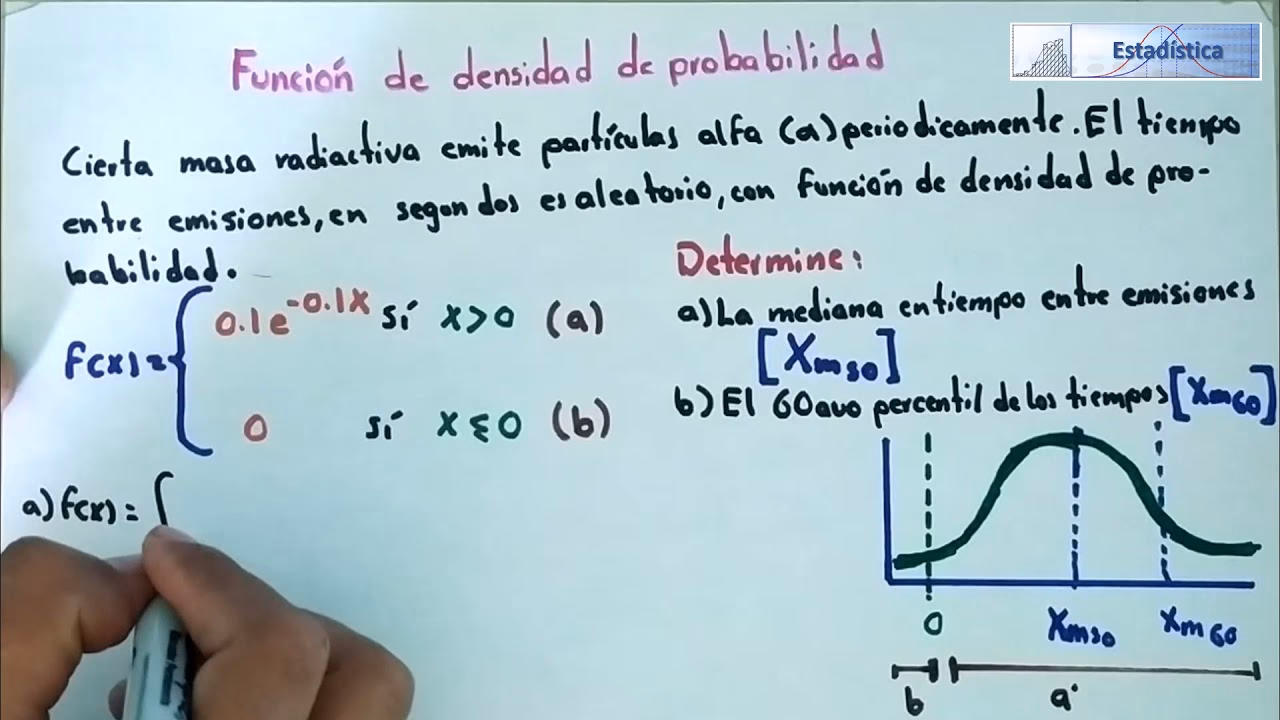 Estadística
Función de densidad de probabilidad
Cierta masa radiactiva emite partículas alfa (a) periodicamente. El tiempo
entre emisiones, en segundos es aleatorio, con función de densidad de pro-
babilidad.
f(x) = { 0.1e^-0.1x sí x>0 (a)
0 sí x≤0 (b)
Determine:
a) La mediana en tiempo entre emisiones
[Xm50]
b) El 60avo percentil de los tiempos [Xm60]
a) f(x) = ∫
0 Xm50 Xm60
b a